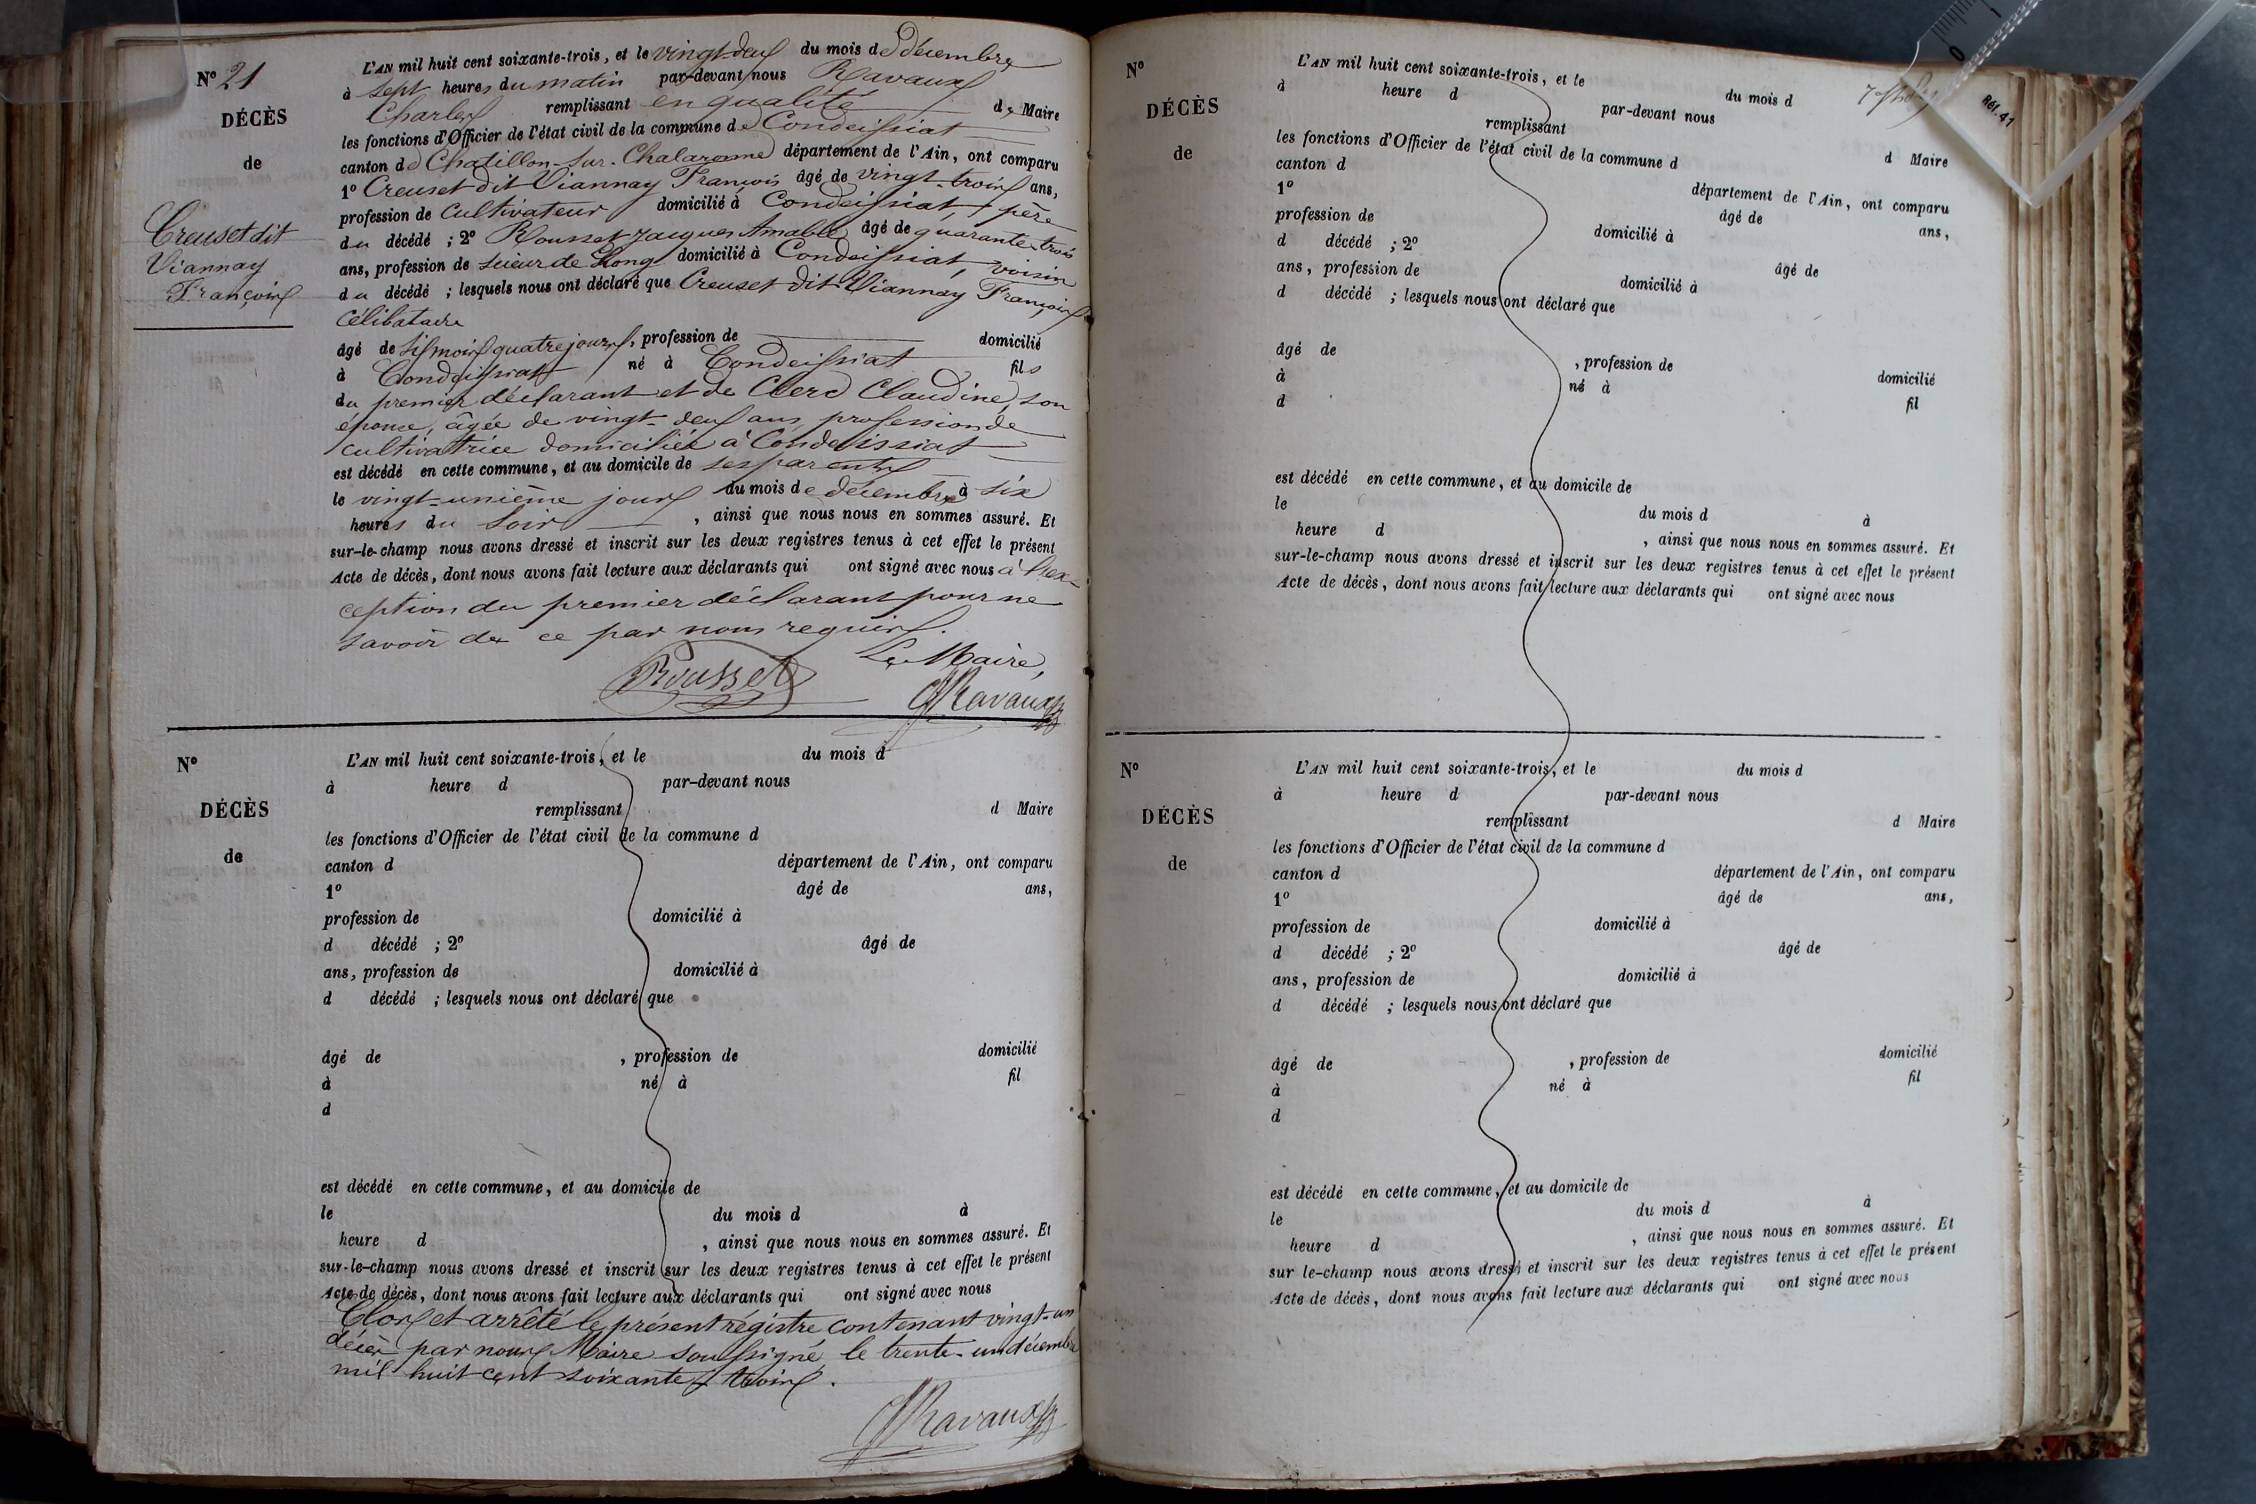 N° 21
DÉCÈS
de
Creuset dit
Viannay
François
L'AN mil huit cent soixante-trois, et le vingt-deux du mois de décembre
à sept heures du matin par-devant nous Ravaux
Charles remplissant en qualité de Maire
les fonctions d'Officier de l'état civil de la commune de Condeissiat
canton de Chatillon-sur-Chalaronne département de l'Ain, ont comparu
1° Creuset dit Viannay François âgé de vingt-trois ans,
profession de cultivateur domicilié à Condeissiat, père
du décédé ; 2° Rousset Jacques Amable âgé de quarante-trois
ans, profession de scieur de long domicilié à Condeissiat, voisin
du décédé ; lesquels nous ont déclaré que Creuset dit Viannay François
célibataire
âgé de six mois quatre jours, profession de domicilié
à Condeissiat né à Condeissiat fils
du premier déclarant et de Clerc Claudine, son
épouse, âgée de vingt-deux ans, profession de
cultivatrice domiciliée à Condeissiat
est décédé en cette commune, et au domicile de ses parents
le vingt-unième jour du mois de décembre à six
heures du soir, ainsi que nous nous en sommes assuré. Et
sur-le-champ nous avons dressé et inscrit sur les deux registres tenus à cet effet le présent
Acte de décès, dont nous avons fait lecture aux déclarants qui ont signé avec nous à l'ex-
ception du premier déclarant pour ne
savoir de ce par nous requis.
Le Maire,
Rousset Ravaux
N°
DÉCÈS
de
L'AN mil huit cent soixante-trois, et le du mois d
à heure d par-devant nous
remplissant d Maire
les fonctions d'Officier de l'état civil de la commune d
canton d département de l'Ain, ont comparu
1° âgé de ans,
profession de domicilié à
d décédé ; 2° âgé de
ans, profession de domicilié à
d décédé ; lesquels nous ont déclaré que
âgé de , profession de domicilié
à né à fil
d
est décédé en cette commune, et au domicile de
le du mois d à
heure d , ainsi que nous nous en sommes assuré. Et
sur-le-champ nous avons dressé et inscrit sur les deux registres tenus à cet effet le présent
Acte de décès, dont nous avons fait lecture aux déclarants qui ont signé avec nous
Clos et arrêté le présent régistre contenant vingt-un
décès par nous Maire soussigné le trente-un décembre
mil huit cent soixante-trois.
Ravaux
N°
DÉCÈS
de
L'AN mil huit cent soixante-trois, et le du mois d
à heure d par-devant nous
remplissant d Maire
les fonctions d'Officier de l'état civil de la commune d
canton d département de l'Ain, ont comparu
1° âgé de ans,
profession de domicilié à
d décédé ; 2° âgé de
ans, profession de domicilié à
d décédé ; lesquels nous ont déclaré que
âgé de , profession de domicilié
à né à fil
d
est décédé en cette commune, et au domicile de
le du mois d à
heure d , ainsi que nous nous en sommes assuré. Et
sur-le-champ nous avons dressé et inscrit sur les deux registres tenus à cet effet le présent
Acte de décès, dont nous avons fait lecture aux déclarants qui ont signé avec nous
N°
DÉCÈS
de
L'AN mil huit cent soixante-trois, et le du mois d
à heure d par-devant nous
remplissant d Maire
les fonctions d'Officier de l'état civil de la commune d
canton d département de l'Ain, ont comparu
1° âgé de ans,
profession de domicilié à
d décédé ; 2° âgé de
ans, profession de domicilié à
d décédé ; lesquels nous ont déclaré que
âgé de , profession de domicilié
à né à fil
d
est décédé en cette commune, et au domicile de
le du mois d à
heure d , ainsi que nous nous en sommes assuré. Et
sur le-champ nous avons dressé et inscrit sur les deux registres tenus à cet effet le présent
Acte de décès, dont nous avons fait lecture aux déclarants qui ont signé avec nous
Réf. 41
0 1